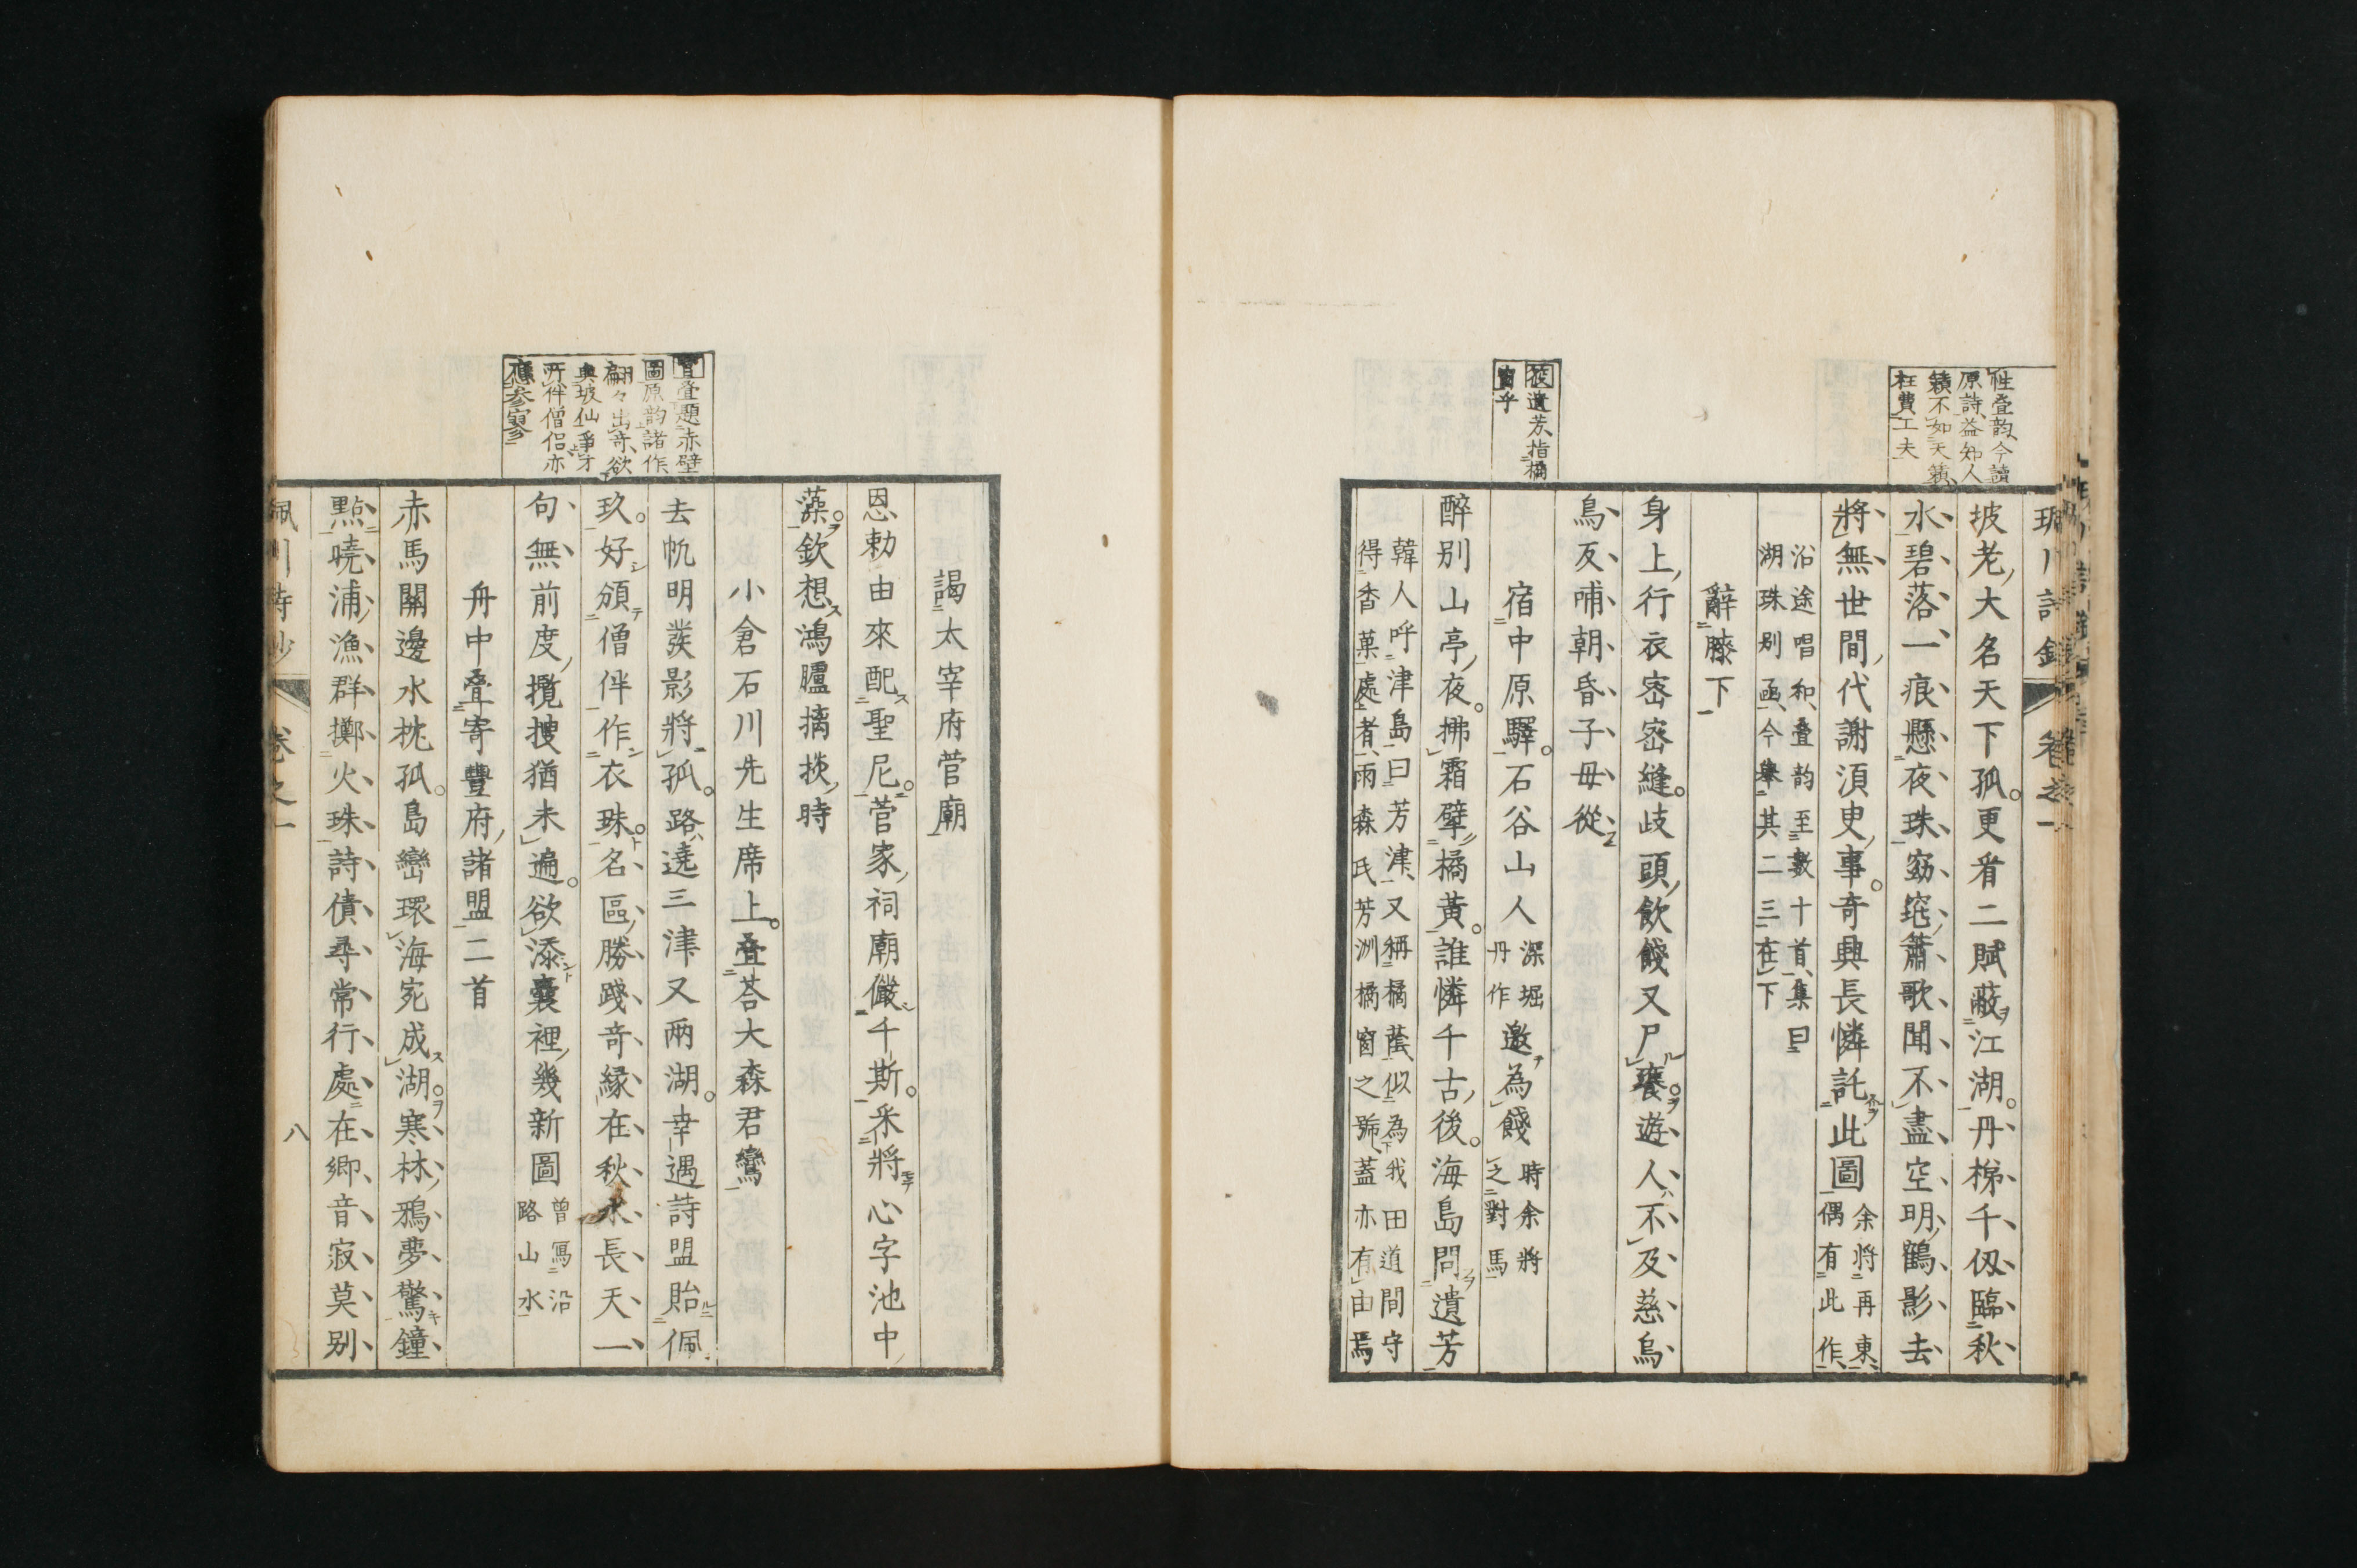 性疊韵、今讀
原詩、益知人
籟不如天籟、
枉費工夫
坡老大名天下孤更看二賦蔽江湖丹梯千仭臨秋
水碧落一痕懸夜珠窈窕蕭歌聞不盡空明鶴影去
將無世間代謝須臾事奇興長憐託此圖余將再東
偶有此作
沿途唱和疊韵至數十首集曰
湖珠別函今舉其二三在下
辭膝下
身上行衣密密縫歧頭飲餞又尸饔遊人不及慈烏
鳥反哺朝昏子母從
宿中原驛石谷山人深堀
丹作邀為餞時余將
之對馬
筱
遺芳、指橘
窗乎
醉別山亭夜拂霜擘橘黃誰憐千古後海島問遺芳
韓人呼津島曰芳津又稱橘蔭似為我田道間守
得香菓處者雨森氏芳洲橘窗之號蓋亦有由焉
謁太宰府菅廟
恩勅由來配聖尼菅家祠廟儼千斯釆將心字池中
藻欽想鴻臚摛掞時
小倉石川先生席上疊荅大森君鸞
疊題赤壁
圖原韵諸作
翩々出奇、欲
與坡仙爭才
所伴僧侶亦
應參寥
去帆明羙影將孤路遶三津又兩湖幸遇詩盟貽佩
玖好頒僧伴作衣珠名區勝踐奇緣在秋水長天一
句無前度攬搜猶未遍欲添囊裡幾新圖曾寫沿
路山水
舟中疊寄豐府諸盟二首
赤馬關邊水枕孤島巒環海宛成湖寒林鴉夢驚鐘
點曉浦漁群擲火珠詩債尋常行處在鄉音寂莫別
佩川詩鈔 卷之一 八